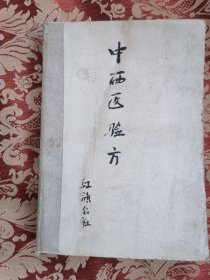 中西医验方
红旗公社